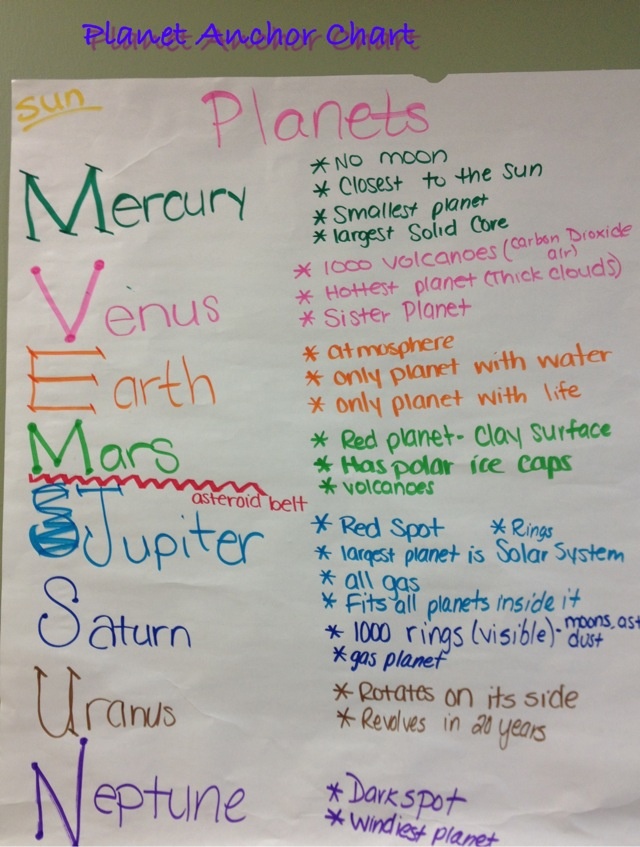 Planet Anchor Chart
Sun
Planets
Mercury
* No moon
* Closest to the sun
* Smallest planet
* largest Solid Core
Venus
* 1000 volcanoes (Carbon Dioxide
air)
* Hottest planet (Thick clouds)
* Sister Planet
Earth
* atmosphere
* only planet with water
* only planet with life
Mars
* Red planet- Clay surface
* Has polar ice caps
* volcanoes
asteroid belt
Jupiter
* Red Spot * Rings
* largest planet is Solar System
* all gas
* Fits all planets inside it
Saturn
* 1000 rings (visible)- moons, ast
dust
* gas planet
Uranus
* Rotates on its side
* Revolves in 20 years
Neptune
* Dark spot
* windiest planet